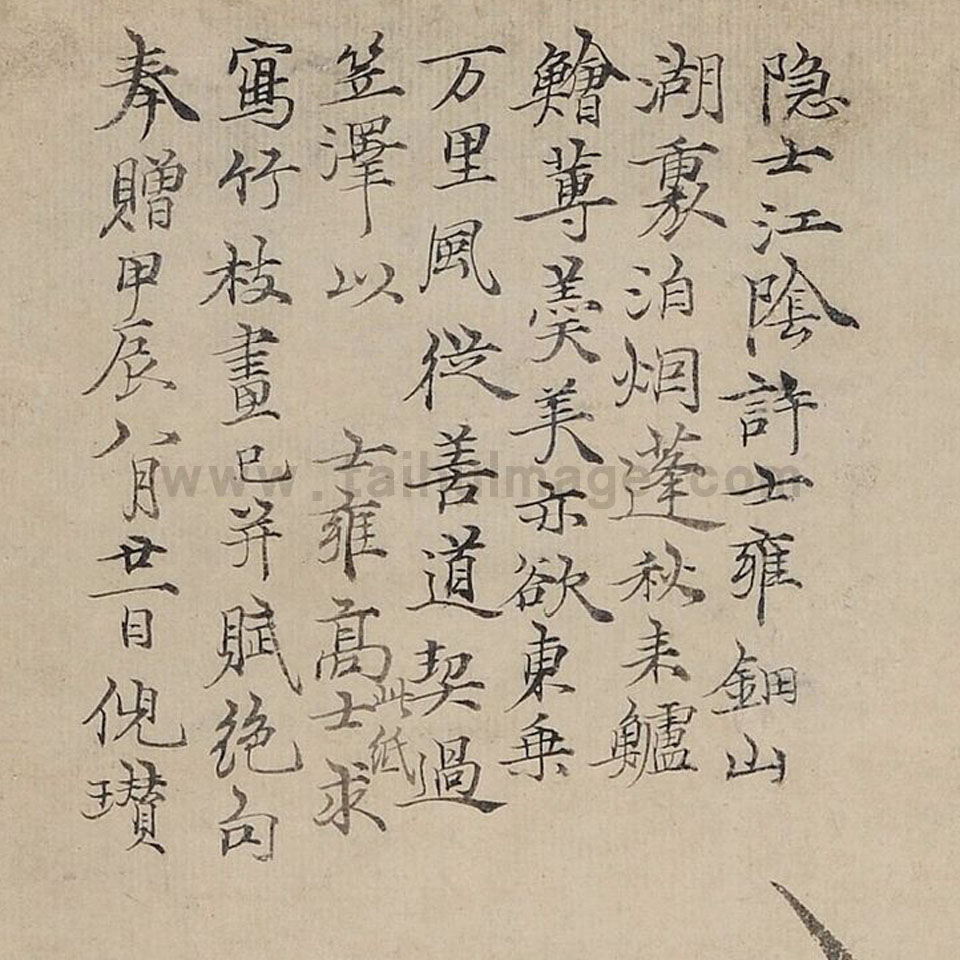 隐士江陰許士雍鈿山
湖裏泊烟蓬秋来鱸
鱠蓴羹美亦欲東乗
万里風從善道契過
笠澤以 士雍高士求此紙
寫竹枝畫已并賦絶句
奉贈甲辰八月廿一日倪瓚